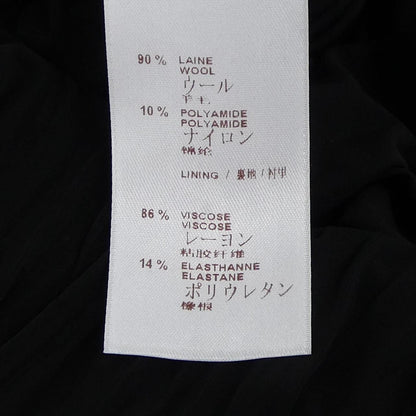 90 % LAINE
WOOL
ウール
羊毛
10 % POLYAMIDE
POLYAMIDE
ナイロン
錦綸
LINING / 裏地 / 衬里
86 % VISCOSE
VISCOSE
レーヨン
粘胶纤维
14 % ELASTHANNE
ELASTANE
ポリウレタン